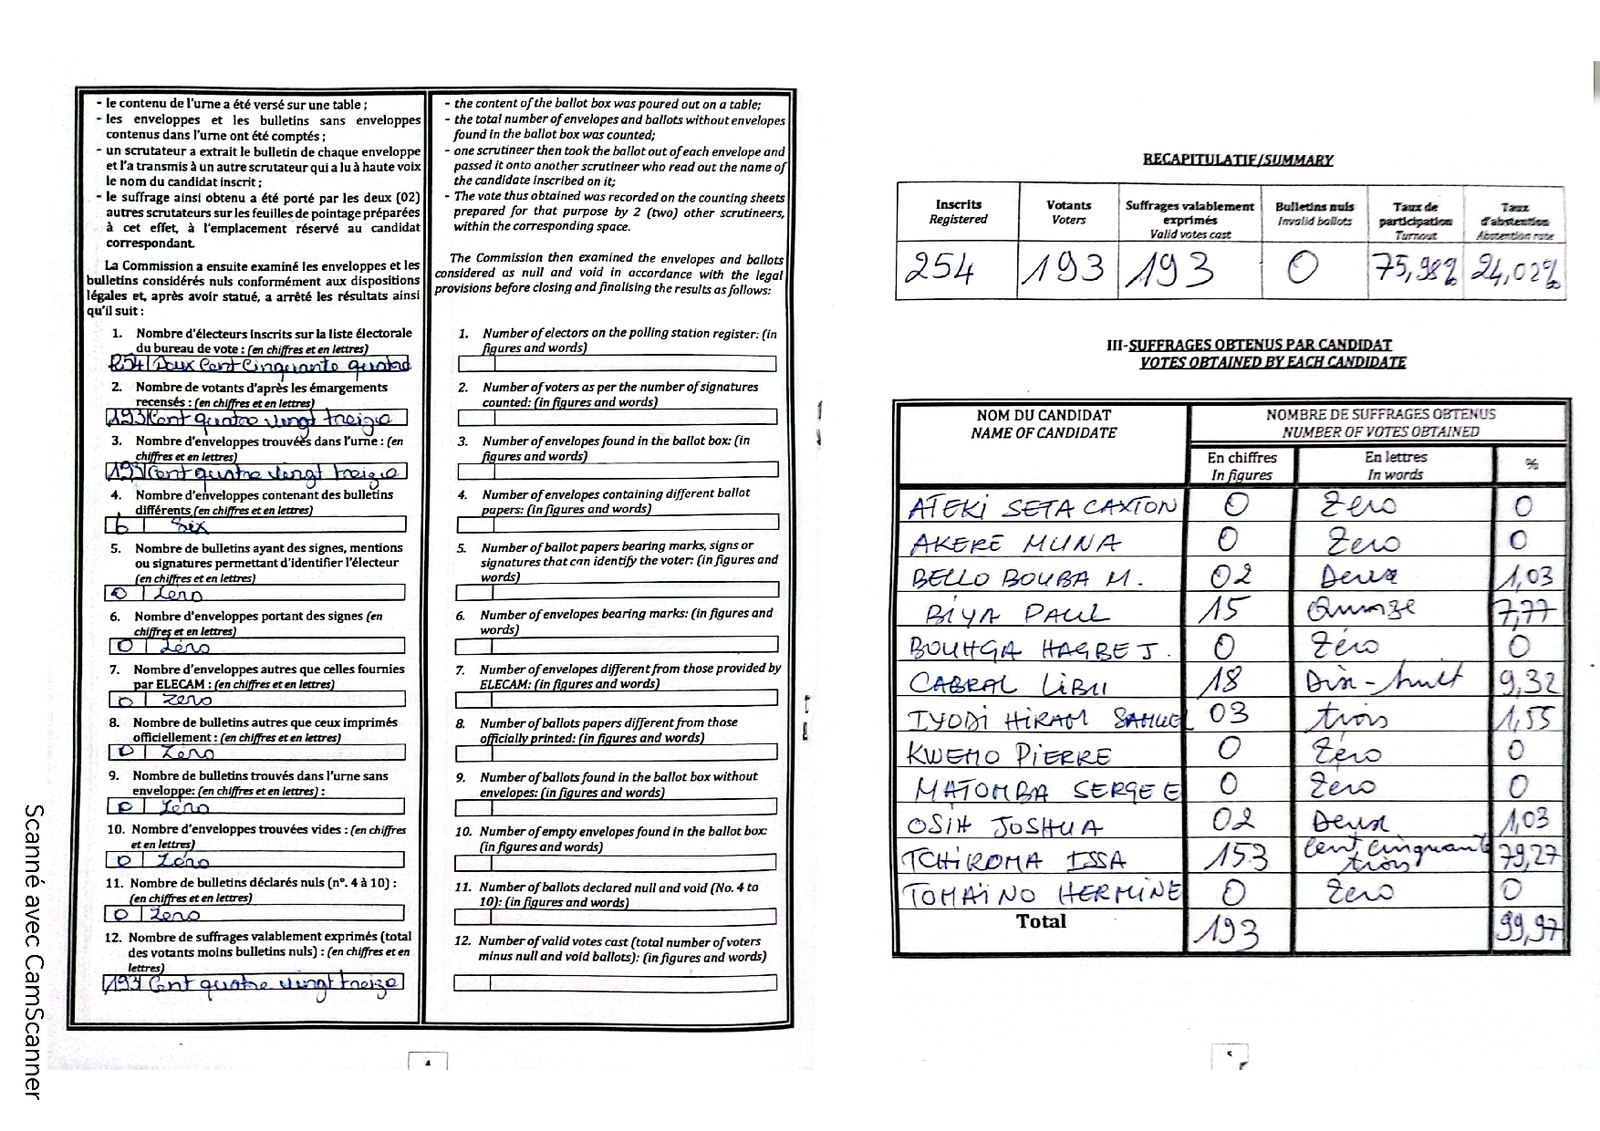 - le contenu de l'urne a été versé sur une table ;
- les enveloppes et les bulletins sans enveloppes
contenus dans l'urne ont été comptés ;
- un scrutateur a extrait le bulletin de chaque enveloppe
et l'a transmis à un autre scrutateur qui a lu à haute voix
le nom du candidat inscrit ;
- le suffrage ainsi obtenu a été porté par les deux (02)
autres scrutateurs sur les feuilles de pointage préparées
à cet effet, à l'emplacement réservé au candidat
correspondant.
La Commission a ensuite examiné les enveloppes et les
bulletins considérés nuls conformément aux dispositions
légales et, après avoir statué, a arrêté les résultats ainsi
qu'il suit :
1. Nombre d'électeurs inscrits sur la liste électorale
du bureau de vote : (en chiffres et en lettres)
254 Deux Cent Cinquante quatre
2. Nombre de votants d'après les émargements
recensés : (en chiffres et en lettres)
193 Cent quatre vingt treize
3. Nombre d'enveloppes trouvées dans l'urne : (en
chiffres et en lettres)
193 Cent quatre vingt treize
4. Nombre d'enveloppes contenant des bulletins
différents (en chiffres et en lettres)
6 Six
5. Nombre de bulletins ayant des signes, mentions
ou signatures permettant d'identifier l'électeur
(en chiffres et en lettres)
0 Zero
6. Nombre d'enveloppes portant des signes (en
chiffres et en lettres)
0 Zéro
7. Nombre d'enveloppes autres que celles fournies
par ELECAM : (en chiffres et en lettres)
0 Zero
8. Nombre de bulletins autres que ceux imprimés
officiellement : (en chiffres et en lettres)
0 Zéro
9. Nombre de bulletins trouvés dans l'urne sans
enveloppe: (en chiffres et en lettres) :
0 Zéro
10. Nombre d'enveloppes trouvées vides : (en chiffres
et en lettres)
0 Zéro
11. Nombre de bulletins déclarés nuls (n°. 4 à 10) :
(en chiffres et en lettres)
0 Zero
12. Nombre de suffrages valablement exprimés (total
des votants moins bulletins nuls) : (en chiffres et en
lettres)
193 Cent quatre vingt treize
- the content of the ballot box was poured out on a table;
- the total number of envelopes and ballots without envelopes
found in the ballot box was counted;
- one scrutineer then took the ballot out of each envelope and
passed it onto another scrutineer who read out the name of
the candidate inscribed on it;
- The vote thus obtained was recorded on the counting sheets
prepared for that purpose by 2 (two) other scrutineers,
within the corresponding space.
The Commission then examined the envelopes and ballots
considered as null and void in accordance with the legal
provisions before closing and finalising the results as follows:
1. Number of electors on the polling station register: (in
figures and words)
2. Number of voters as per the number of signatures
counted: (in figures and words)
3. Number of envelopes found in the ballot box: (in
figures and words)
4. Number of envelopes containing different ballot
papers: (in figures and words)
5. Number of ballot papers bearing marks, signs or
signatures that can identify the voter: (in figures and
words)
6. Number of envelopes bearing marks: (in figures and
words)
7. Number of envelopes different from those provided by
ELECAM: (in figures and words)
8. Number of ballots papers different from those
officially printed: (in figures and words)
9. Number of ballots found in the ballot box without
envelopes: (in figures and words)
10. Number of empty envelopes found in the ballot box:
(in figures and words)
11. Number of ballots declared null and void (No. 4 to
10): (in figures and words)
12. Number of valid votes cast (total number of voters
minus null and void ballots): (in figures and words)
4
Scanné avec CamScanner
RECAPITULATIF/SUMMARY
Inscrits Votants Suffrages valablement Bulletins nuls Taux de Taux
Registered Voters exprimés Invalid ballots participation d'abstention
Valid votes cast Turnout Abstention rate
254 193 193 0 75,98% 24,02%
III-SUFFRAGES OBTENUS PAR CANDIDAT
VOTES OBTAINED BY EACH CANDIDATE
NOM DU CANDIDAT NOMBRE DE SUFFRAGES OBTENUS
NAME OF CANDIDATE NUMBER OF VOTES OBTAINED
En chiffres En lettres %
In figures In words
ATEKI SETA CAXTON 0 Zero 0
AKERE MUNA 0 Zero 0
BELLO BOUBA M. 02 Deux 1,03
BIYA PAUL 15 Quinze 7,77
BOUHGA HAGBE J. 0 Zéro 0
CABRAL LIBII 18 Dix-huit 9,32
IYODI HIRAM SAMUEL 03 trois 1,55
KWEMO PIERRE 0 Zéro 0
MATOMBA SERGE E 0 Zéro 0
OSIH JOSHUA 02 Deux 1,03
TCHIROMA ISSA 153 Cent cinquante trois 79,27
TOMAINO HERMINE 0 Zero 0
Total 193 99,97
5